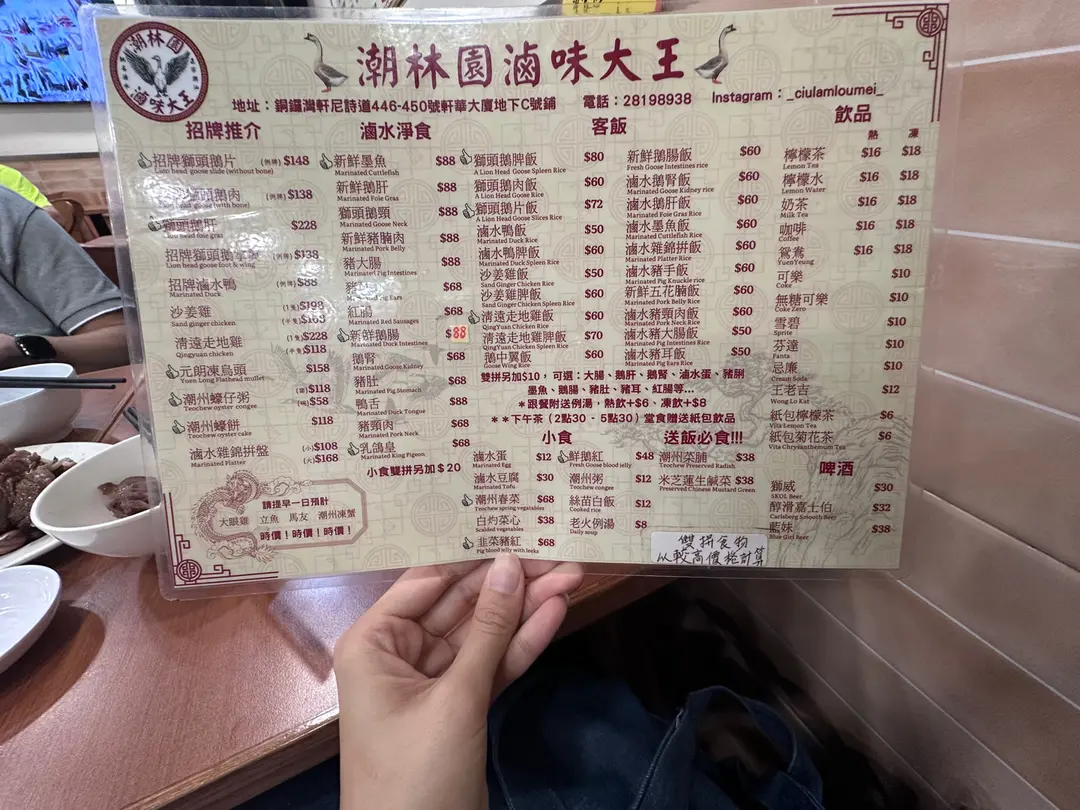 潮林園
滷味大王
潮林園滷味大王
地址：銅鑼灣軒尼詩道446-450號軒華大廈地下C號鋪 電話：28198938 Instagram：_ciulamloumei_
招牌推介
招牌獅頭鵝片 (例牌) $148
Lion head goose slide (without bone)
獅頭鵝肉 (例牌) $138
goose (with bone)
獅頭鵝肝 $228
Lion head foie gras
招牌獅頭鵝 (例牌) $138
Lion head goose foot & wing
招牌滷水鴨 (例牌) $88
Marinated Duck
沙姜雞 (1隻) $198
Sand ginger chicken (半隻) $163
清遠走地雞 (1隻) $228
Qingyuan chicken (半隻) $118
元朗凍烏頭 $158
Yuen Long Flathead mullet
潮州蠔仔粥 (窩) $118
Teochew oyster congee (碗) $58
潮州蠔餅 $118
Teochew oyster cake
滷水雜錦拼盤 (小) $108
(大) $168
請提早一日預計
大眼雞 立魚 馬友 潮州凍蟹
時價！時價！時價！
滷水淨食
新鮮墨魚 $88
Marinated Cuttlefish
新鮮鵝肝 $88
Marinated Foie Gras
獅頭鵝頸 $88
Marinated Goose Neck
新鮮豬腩肉 $88
Marinated Pork Belly
豬大腸 $88
Marinated Pig Intestines
豬 $68
Marinated Pig Ears
紅腸 $68
Marinated Red Sausages
新鮮鵝腸 $88
Marinated Duck Intestines
鵝腎 $68
Marinated Goose Kidney
豬肚 $68
Marinated Pig Stomach
鴨舌 $88
Marinated Duck Tongue
豬頸肉 $68
Marinated Pork Neck
乳鴿皇 $68
Marinated King Pigeon
小食雙拼另加$20
客飯
獅頭鵝脾飯 $80
A Lion Head Goose Spleen Rice
獅頭鵝肉飯 $60
A Lion Head Goose Rice
獅頭鵝片飯 $72
A Lion Head Goose Slices Rice
滷水鴨飯 $50
Marinated Duck Rice
滷水鴨脾飯 $60
Marinated Duck Spleen Rice
沙姜雞飯 $50
Sand Ginger Chicken Rice
沙姜雞脾飯 $60
Sand Ginger Chicken Spleen Rice
清遠走地雞飯 $60
QingYuan Chicken Rice
清遠走地雞脾飯 $70
QingYuan Chicken Spleen Rice
鵝中翼飯 $60
Goose Wing Rice
新鮮鵝腸飯 $60
Fresh Goose Intestines rice
滷水鵝腎飯 $60
Marinated Goose Kidney rice
滷水鵝肝飯 $60
Marinated Foie Gras Rice
滷水墨魚飯 $60
Marinated Cuttlefish Rice
滷水雜錦拼飯 $60
Marinated Platter Rice
滷水豬手飯 $60
Marinated Pig Knuckle rice
新鮮五花腩飯 $60
Marinated Pork Belly Rice
滷水豬頸肉飯 $60
Marinated Pork Neck Rice
滷水豬大腸飯 $50
Marinated Pig Intestines Rice
滷水豬耳飯 $50
Marinated Pig Ears Rice
雙拼另加$10，可選：大腸、鵝肝、鵝腎、滷水蛋、豬脷
墨魚、鵝腸、豬肚、豬耳、紅腸等...
*跟餐附送例湯，熱飲+$6、凍飲+$8
**下午茶（2點30 - 5點30）堂食贈送紙包飲品
小食
滷水蛋 $12
Marinated Egg
滷水豆腐 $30
Marinated Tofu
潮州春菜 $68
Teochew spring vegetables
白灼菜心 $38
Scalded vegetables
韭菜豬紅 $68
Pig blood jelly with leeks
鮮鵝紅 $48
Fresh Goose blood jelly
潮州粥 $12
Teochew congee
絲苗白飯 $12
Cooked rice
老火例湯 $8
Daily soup
送飯必食!!!
潮州菜脯 $38
Teochew Preserved Radish
米芝蓮生鹹菜 $38
Preserved Chinese Mustard Green
雙拼食物
以較高價格計算
飲品
熱 凍
檸檬茶 $16 $18
Lemon Tea
檸檬水 $16 $18
Lemon Water
奶茶 $16 $18
Milk Tea
咖啡 $16 $18
Coffee
鴛鴦 $16 $18
YuenYeung
可樂 $10
Coke
無糖可樂 $10
Coke Zero
雪碧 $10
Sprite
芬達 $10
Fanta
忌廉 $10
Cream Soda
王老吉 $12
Wong Lo Kat
紙包檸檬茶 $6
Vita Lemon Tea
紙包菊花茶 $6
Vita Chrysanthemum Tea
啤酒
獅威 $30
SKOL Beer
醇滑嘉士伯 $32
Carlsberg Smooth Beer
藍妹 $38
Blue Girl Beer